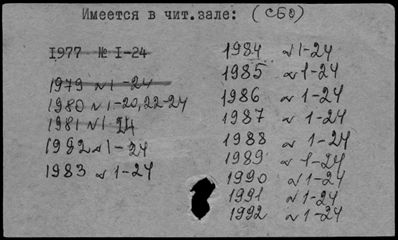 Имеется в чит.зале: (СБО)
1977 № I-24
1979 № 1-24
1980 № 1-20,22-24
1981 № 1-24
1982 № 1-24
1983 № 1-24
1984 № 1-24
1985 № 1-24
1986 № 1-24
1987 № 1-24
1988 № 1-24
1989 № 1-24
1990 № 1-24
1991 № 1-24
1992 № 1-24